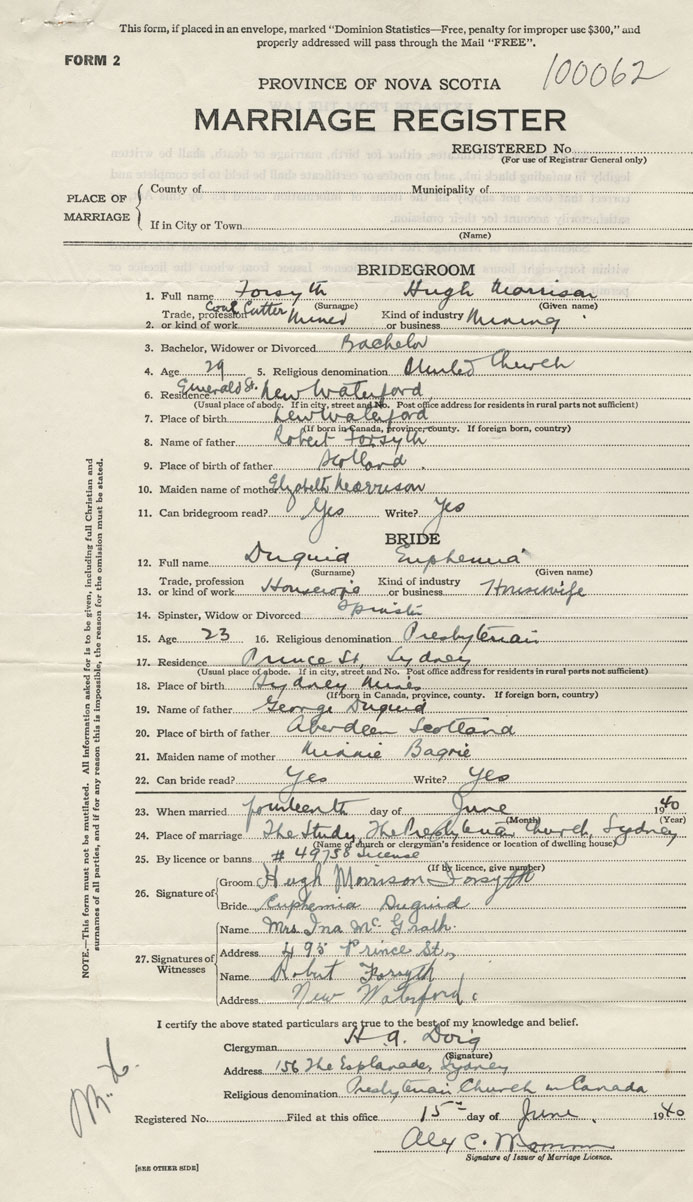 This form, if placed in an envelope, marked "Dominion Statistics—Free, penalty for improper use $300," and
properly addressed will pass through the Mail "FREE".
FORM 2
100062
PROVINCE OF NOVA SCOTIA
MARRIAGE REGISTER
REGISTERED No.
(For use of Registrar General only)
PLACE OF MARRIAGE
County of Municipality of
If in City or Town
(Name)
BRIDEGROOM
1. Full name Forsyth Hugh Morrison
(Surname) (Given name)
2. Trade, profession or kind of work Coal Cutter Miner Kind of industry or business Mining
3. Bachelor, Widower or Divorced Bachelor
4. Age 29 5. Religious denomination United Church
6. Residence Emerald St. New Waterford
(Usual place of abode. If in city, street and No. Post office address for residents in rural parts not sufficient)
7. Place of birth New Waterford
(If born in Canada, province, county. If foreign born, country)
8. Name of father Robert Forsyth
9. Place of birth of father Scotland.
10. Maiden name of mother Elizabeth Morrison
11. Can bridegroom read? Yes Write? Yes
BRIDE
12. Full name Duguid Euphemia
(Surname) (Given name)
13. Trade, profession or kind of work Housewife Kind of industry or business Housewife
14. Spinster, Widow or Divorced Spinster
15. Age 23 16. Religious denomination Presbyterian
17. Residence Prince St, Sydney
(Usual place of abode. If in city, street and No. Post office address for residents in rural parts not sufficient)
18. Place of birth Sydney Mines
(If born in Canada, province, county. If foreign born, country)
19. Name of father George Duguid
20. Place of birth of father Aberdeen Scotland
21. Maiden name of mother Minnie Bagrie
22. Can bride read? Yes Write? Yes
23. When married fourteenth day of June 1940
(Month) (Year)
24. Place of marriage The Study, The Presbyterian Church, Sydney
(Name of church or clergyman's residence or location of dwelling house)
25. By licence or banns # 49758 License
(If by licence, give number)
26. Signature of
Groom Hugh Morrison Forsyth
Bride Euphemia Duguid
27. Signatures of Witnesses
Name Mrs. Ina McGrath
Address 495 Prince St.,
Name Robert Forsyth
Address New Waterford
I certify the above stated particulars are true to the best of my knowledge and belief.
Clergyman H. A. Doig
(Signature)
Address 156 The Esplanade, Sydney
Religious denomination Presbyterian Church in Canada
Registered No. Filed at this office 15th day of June, 1940
Alex C.
Signature of Issuer of Marriage Licence.
[SEE OTHER SIDE]
NOTE.—This form must not be mutilated. All information asked for is to be given, including full Christian and
surnames of all parties, and if for any reason this is impossible, the reason for the omission must be stated.